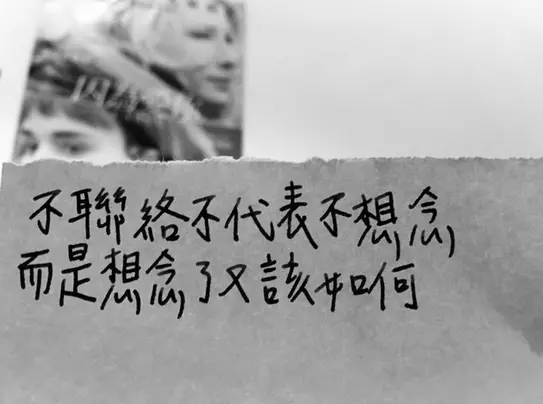 不聯絡不代表不想念
而是想念了又該如何